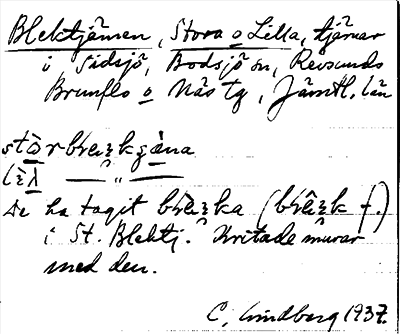 Blektjärnen, Stora o Lilla, tjärnar
i Sidsjö, Bodsjö sn, Revsunds
Brunflo o Näs tg, Jämtl. län
stòrbreik
lìλ — " —
De ha tagit breika (breik f.)
i St. Blektj. Kritade murar
med den.
C. Lindberg 1937.